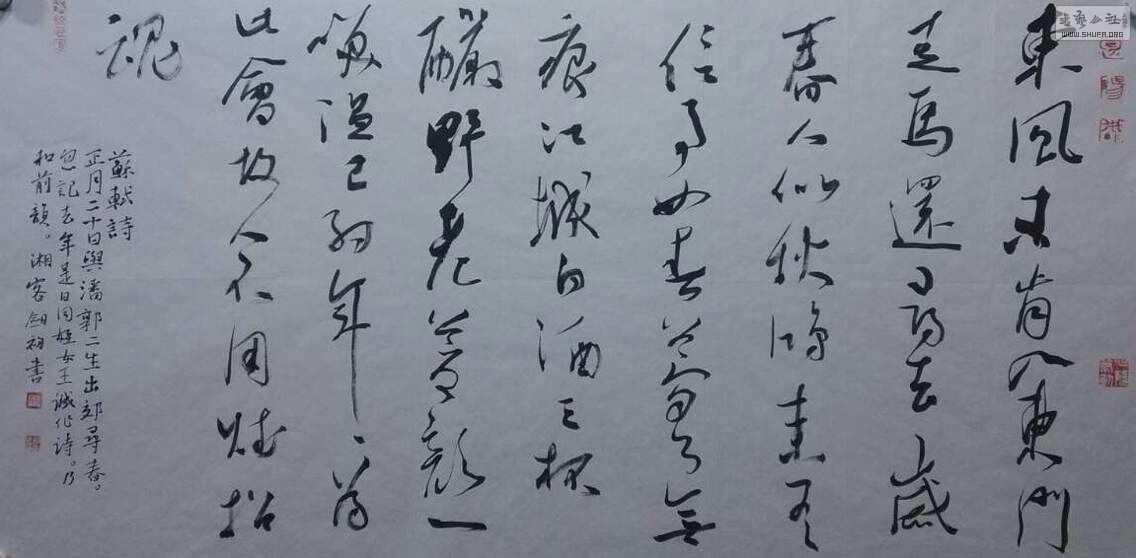 書艺公社
WWW.SHUFA.ORG
東風未肯入東門
走馬還尋去歲
春人似秋鴻來有
信事如春夢了無
痕江城白酒三杯
釅野老蒼顏一
笑溫已約年年為
此會故人不用賦招
魂
蘇軾詩
正月二十日與潘郭二生出郊尋春。
忽記去年是日同至女王誠作詩。乃
和前韻。湘客書